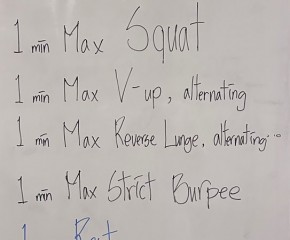 1 min Max Squat
1 min Max V-up, alternating
1 min Max Reverse Lunge, alternating...
1 min Max Strict Burpee
1